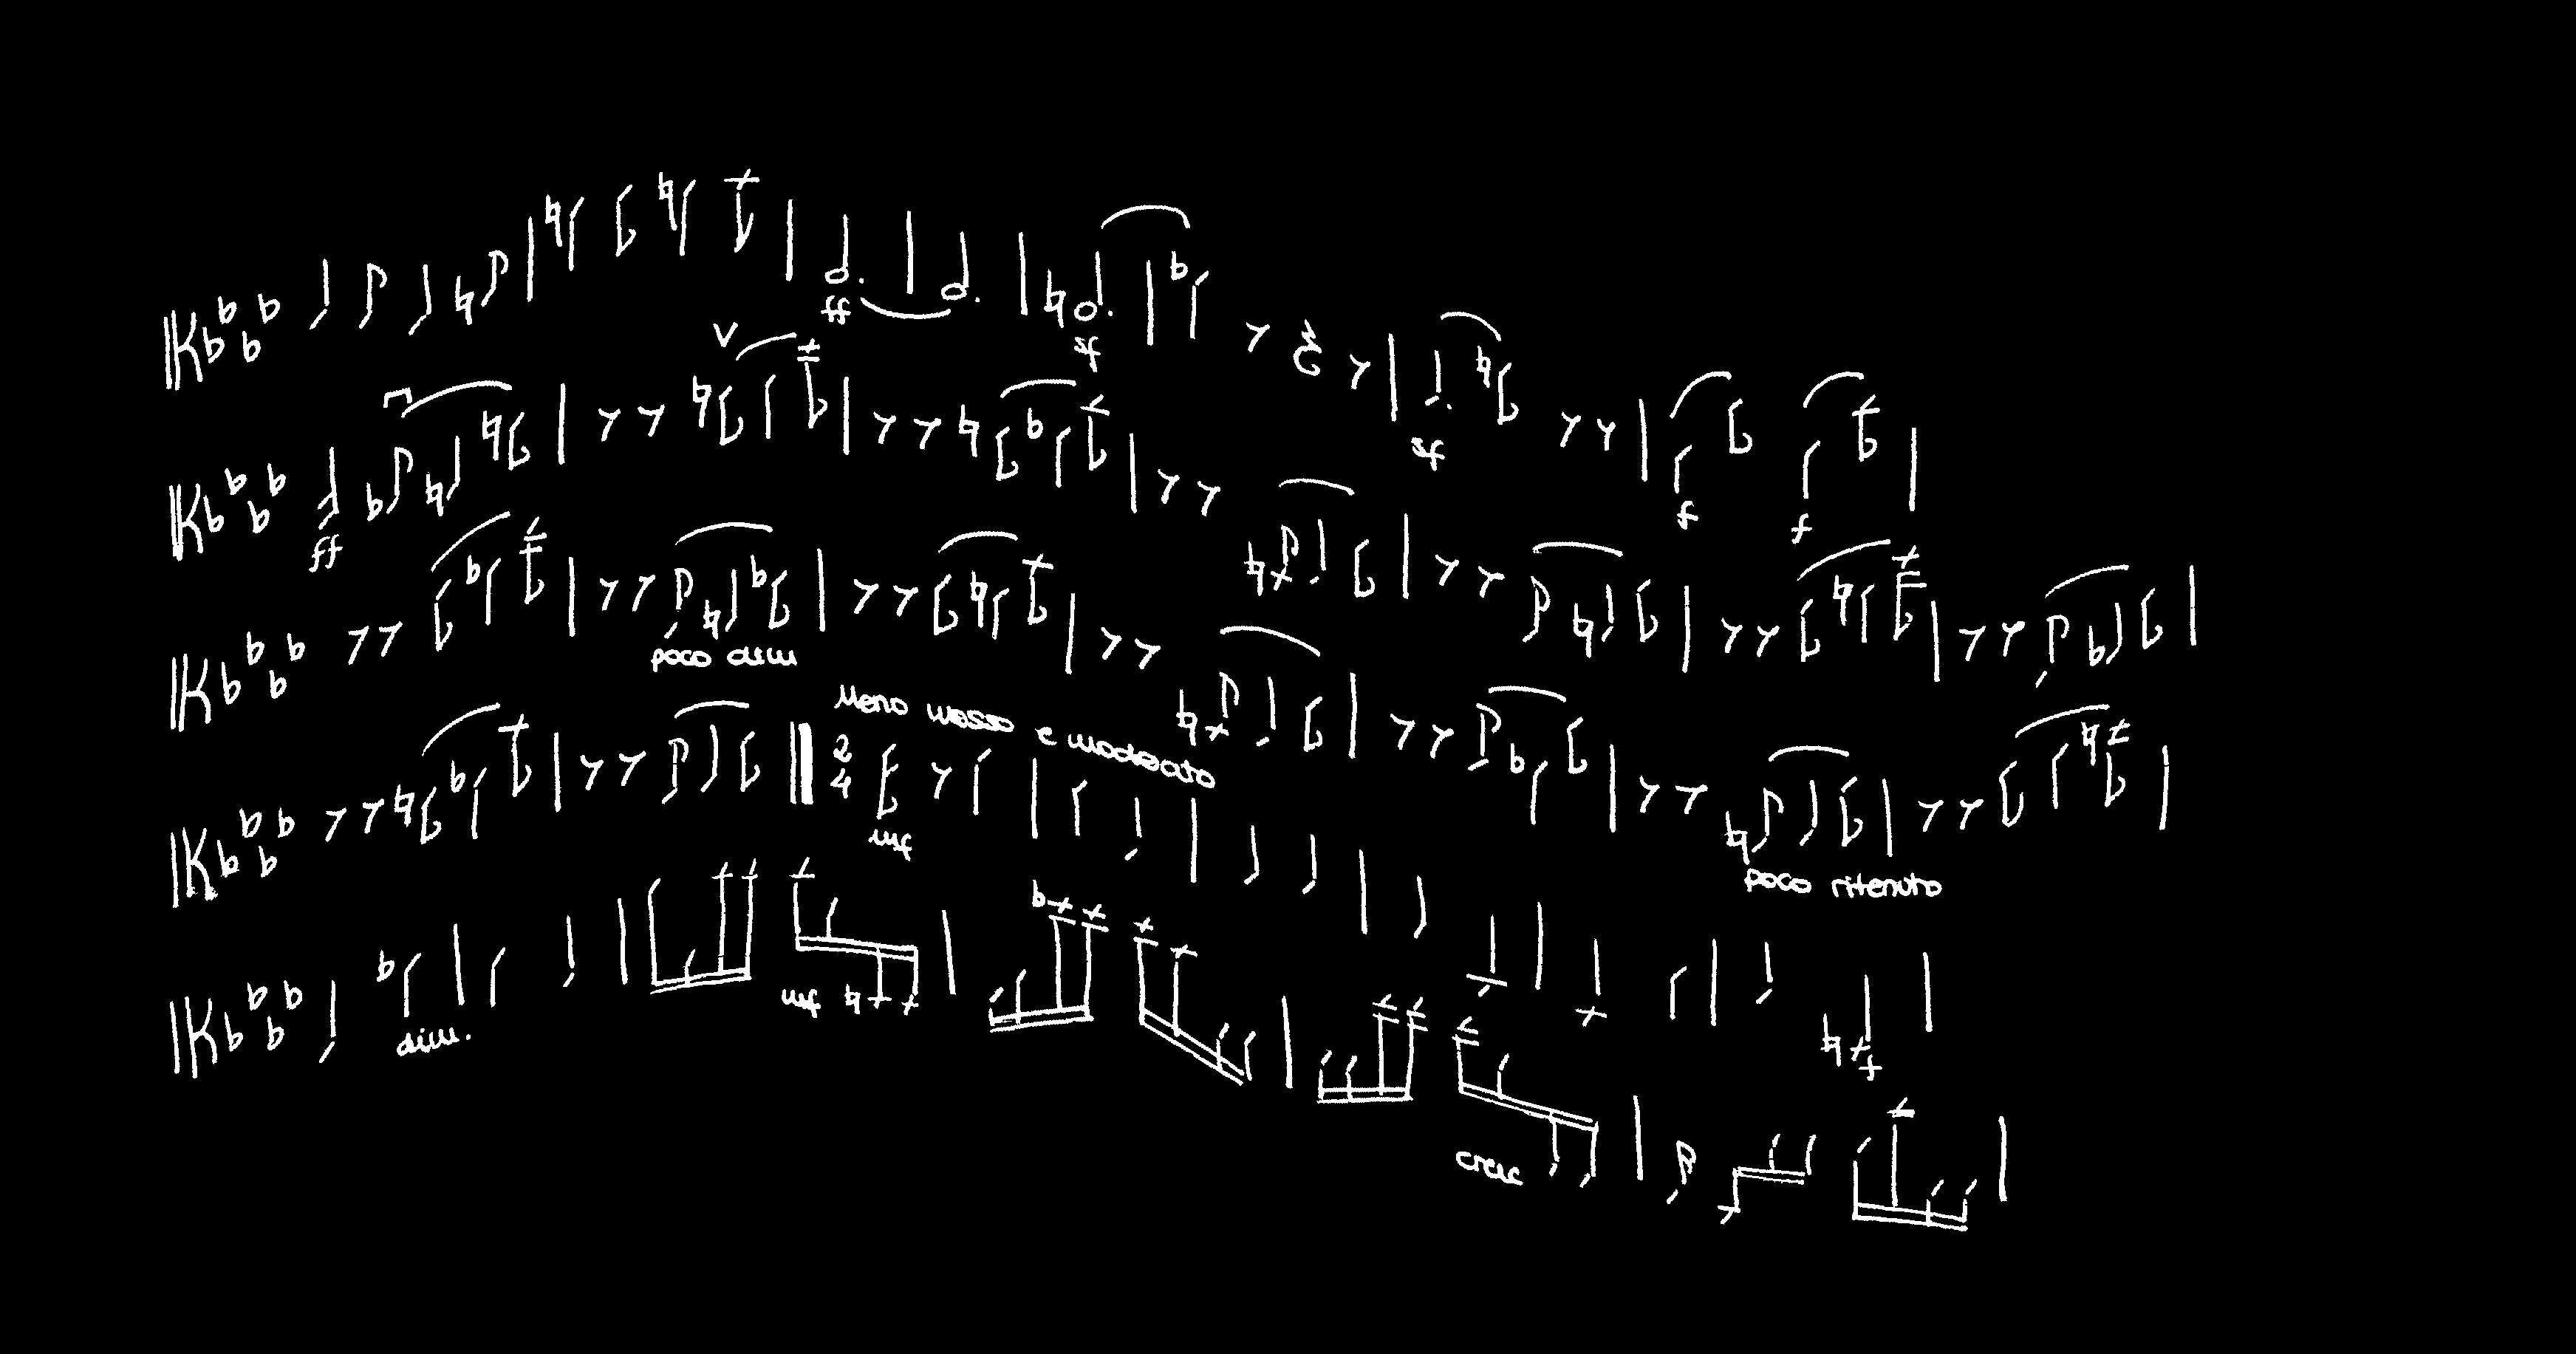 ff sf sf f f
ff
poco dim
Meno mosso e moderato
2
4
mf poco ritenuto
dim. mf f
cresc